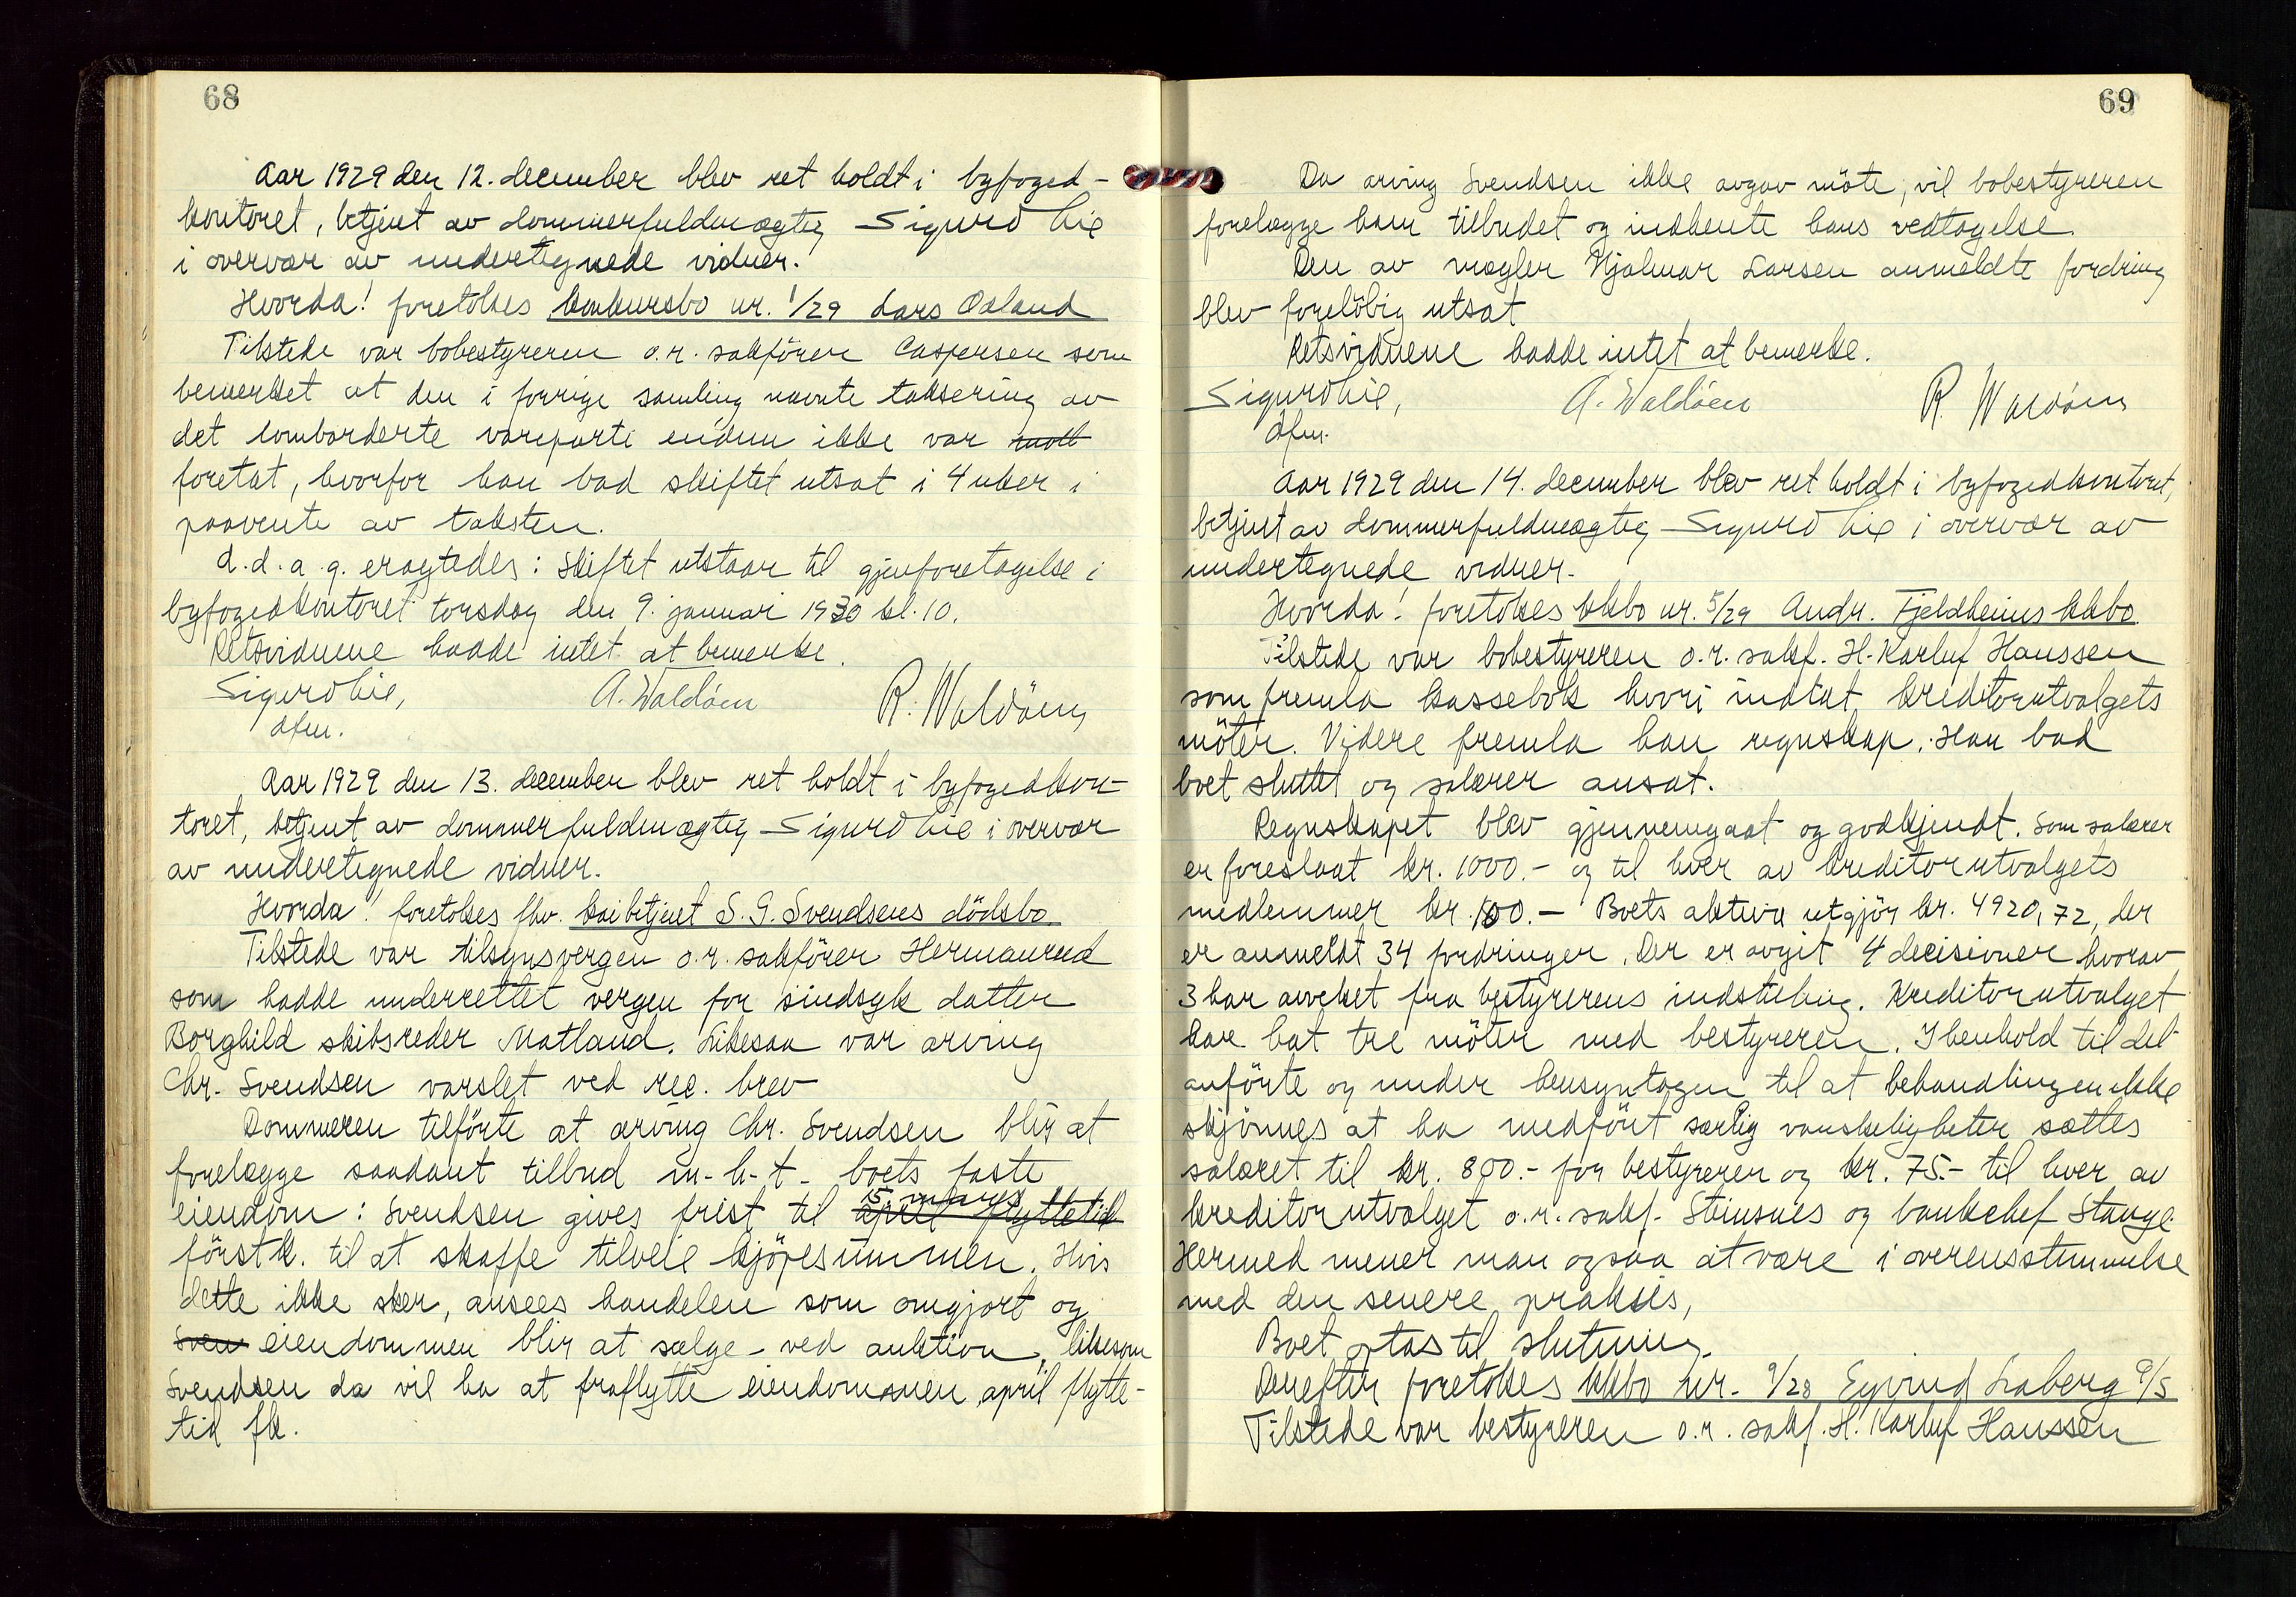 68
Aar 1929 den 12. december blev ret holdt i byfoged-
kontoret, betjent av dommerfuldmægtig Sigurd Lie
i overvær av undertegnede vidner.
Hvorda! foretokes konkursbo nr. 1/29 Lars Oaland
Tilstede var bobestyreren o.r. sakförer Caspersen som
bemerket at den i forrige samling nævnte taksering av
det lombarderte vareparti endnu ikke var mott
foretat, hvorfor han bad skiftet utsat i 4 uker i
paavente av taksten.
d.d.a.g. eragtedes: Skiftet utstaar til gjenforetagelse i
byfogedkontoret torsdag den 9. januar 1930 kl. 10.
Retsvidnene hadde intet at bemerke.
Sigurd Lie, A. Waldöen R. Waldöen
dfm.
Aar 1929 den 13. december blev ret holdt i byfogedkon-
toret, betjent av dommerfuldmægtig Sigurd Lie i overvær
av undertegnede vidner.
Hvorda! foretokes fhv. kaibetjent S. G. Svendsens dödsbo
Tilstede var tilsynsvergen o.r. sakförer Hermanrud
som hadde underrettet vergen for sindsyk datter
Borghild skibsreder Matland. Likesaa var arving
Chr. Svendsen varslet ved rec. brev
Dommeren tilförte at arving Chr. Svendsen blir at
forelægge saadant tilbud m-h-t- boets faste
15 mars
eiendom: Svendsen gives frist til april flyttetid
förstk. til at skaffe tilveie kjöpesummen. Hvis
dette ikke sker, ansees handelen som omgjort og
Sven eiendommen blir at sælge - ved auktion, likesom
Svendsen da vil ha at fraflytte eiendommen april flytte-
tid fk.
69
Da arving Svendsen ikke avgav möte, vil bobestyreren
forelægge ham tilbudet og indhente hans vedtagelse.
Den av mægler Hjalmar Larsen anmeldte fordring
blev forelöbig utsat
Retsvidnene hadde intet at bemerke.
Sigurd Lie, A. Waldöen R. Waldöen
dfm.
Aar 1929 den 14. december blev ret holdt i byfogedkontoret,
betjent av dommerfuldmægtig Sigurd Lie i overvær av
undertegnede vidner.
Hvorda! foretokes kkbo nr. 5/29 Andr. Fjeldheims kkbo
Tilstede var bobestyreren o.r. sakf. H. Karluf Hanssen
som fremla kassebok hvori indtat kreditorutvalgets
möter. Videre fremla han regnskap. Han bad
boet sluttet og salærer ansat.
Regnskapet blev gjennemgaat og godkjendt. Som salærer
er foreslaat kr. 1000.- og til hver av kreditorutvalgets
medlemmer kr. 100.- Boets aktiva utgjör kr. 4920,72, der
er anmeldt 34 fordringer. Der er avgit 4 decisioner hvorav
3 har avveket fra bestyrerens indstilling. Kreditorutvalget
har hat tre möter med bestyreren. I henhold til det
anförte og under hensyntagen til at behandlingen ikke
skjönnes at ha medfört særlig vanskeligheter sættes
salæret til kr. 800.- for bestyreren og kr. 75.- til hver av
kreditorutvalget o.r. sakf. Steinsnes og bankchef Stange.
Hermed mener man ogsaa at være i overensstemmelse
med den senere praksis,
Boet optas til slutning.
Derefter foretokes kkbo nr. 9/28 Eyvind Laberg A/S
Tilstede var bestyreren o.r. sakf. H. Karluf Hanssen